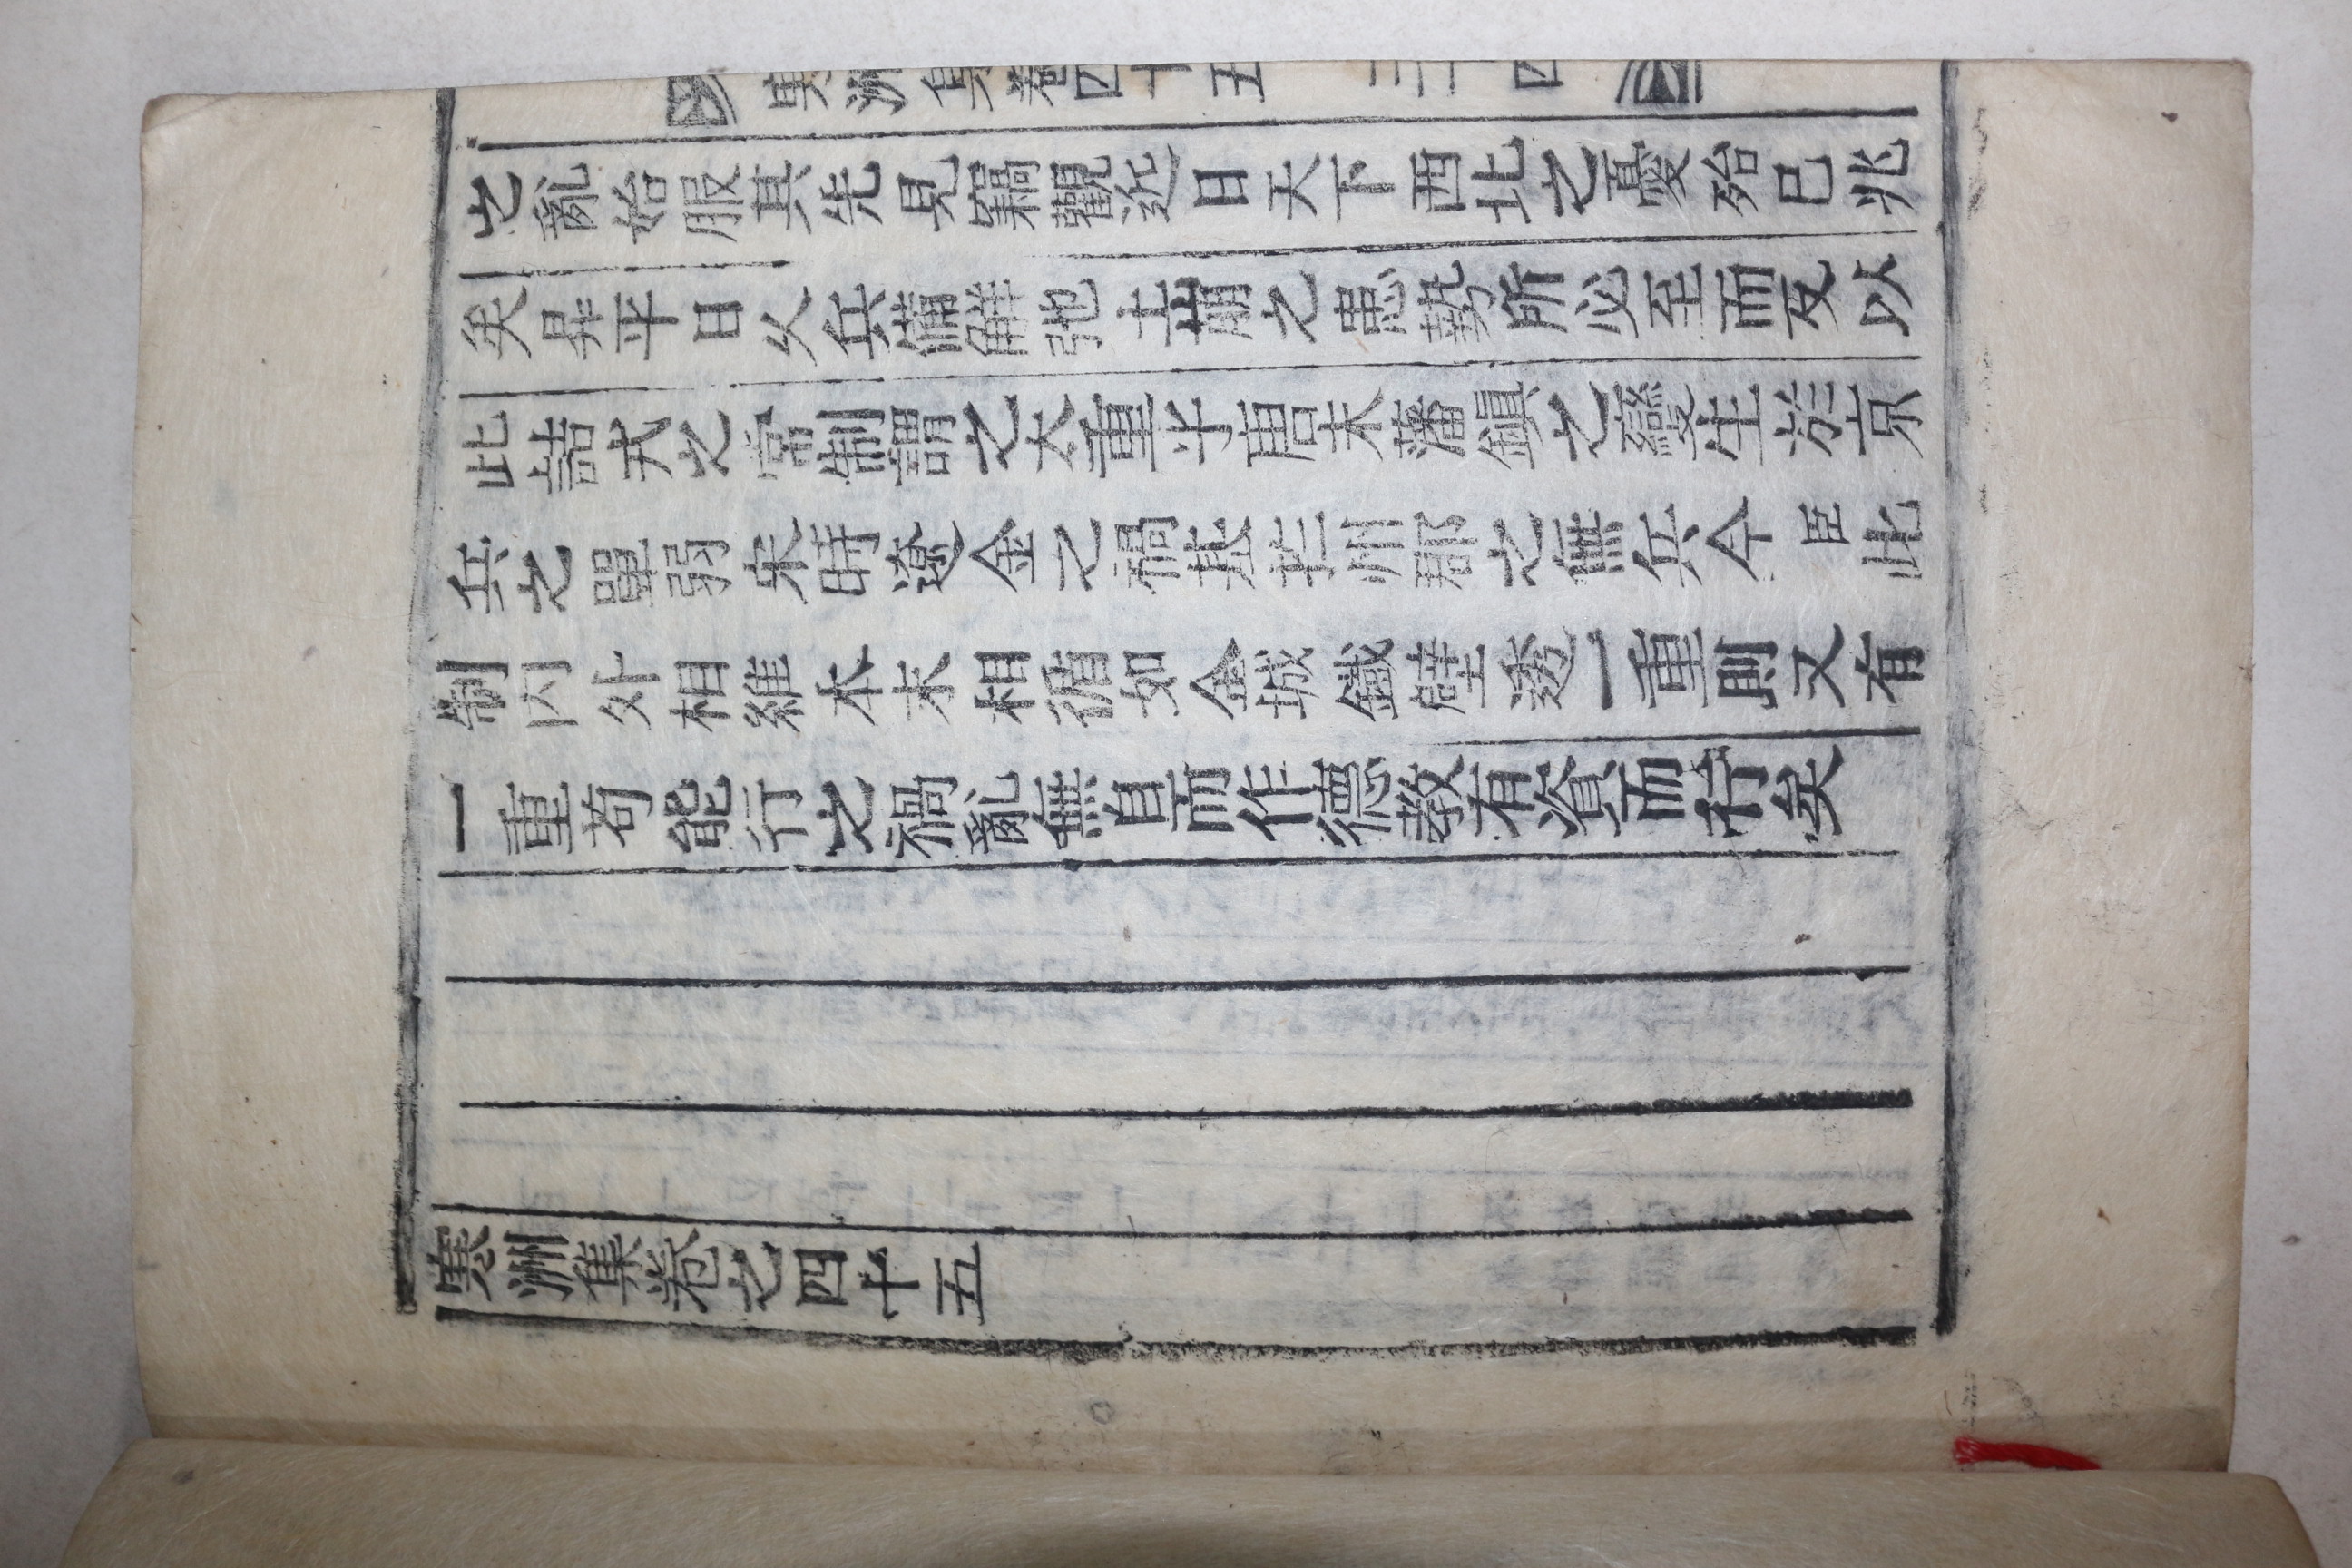 寒洲集卷四十五 三十四
之亂始服其先見竊觀近日天下西北之憂殆已兆
矣昇平日久兵備解弛土崩之患勢所必至而反以
此詰戎之常制謂之太重乎唐末藩鎭之變生於京
兵之單弱宋時遼金之禍基於州郡之無兵今臣此
制內外相維本末相循如金城鐵壁逐一重則又有
一重苟能行之禍亂無自而作德敎有資而行矣
寒洲集卷之四十五